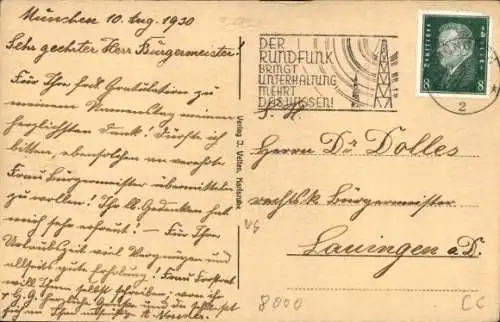 München 10. Aug. 1930
Sehr geehrter Herr Bürgermeister!
Für Ihre frdl. Gratulation zu
meinem Namenstag meinen
herzlichsten Dank! Dürfte ich
bitten, ebensolchen an verehrte
Frau Bürgermeister übermitteln
zu wollen! Ihr lb. Gedenken hat
mich sehr erfreut! – Für Ihre
Urlaubszeit viel Vergnügen und
allseits gute Erholung! Frau
will Ihnen selbst schreiben;
herzliche Grüße und
Verlag D. Vetter, Karlsruhe
DER
RUNDFUNK
BRINGT
UNTERHALTUNG
MEHRT
DAS WISSEN!
2
Deutsches Reich
8 8
S. H.
Herrn Dr. Dolles
rechtsk. Bürgermeister
Lauingen a. D.
VG
8000
CC